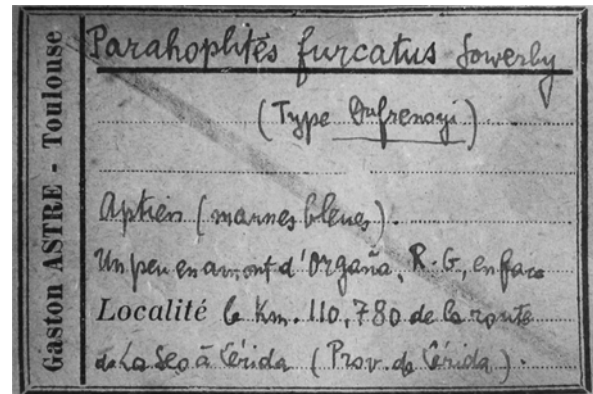 Gaston ASTRE - Toulouse
Parahoplités furcatus Sowerby
(Type Dufrenoyi)
Aptien (marnes bleues).
Un peu en amont d'Organa, R.G, en face
Localité le Km. 110,780 de la route
de La Seo à Lérida (Prov. de Lérida).